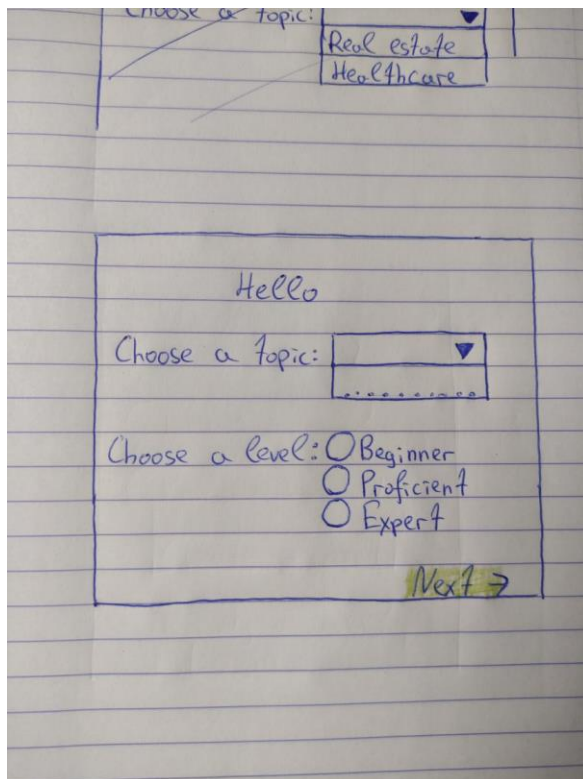 Choose a topic:
Real estate
Healthcare
Hello
Choose a topic:
Choose a level: Beginner
Proficient
Expert
Next →